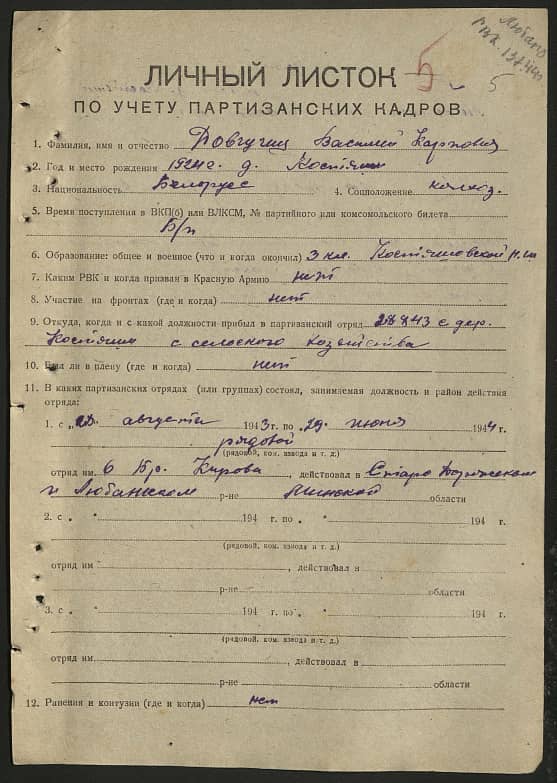 Любань
РВК. 137440
5 5
ЛИЧНЫЙ ЛИСТОК
ПО УЧЕТУ ПАРТИЗАНСКИХ КАДРОВ
1. Фамилия, имя и отчество Довгучиц Василий Карпович
2. Год и место рождения 1924г. д. Костяши
3. Национальность Белорус 4. Соцположение колхоз.
5. Время поступления в ВКП(б) или ВЛКСМ, № партийного или комсомольского билета
Б/п
6. Образование: общее и военное (что и когда окончил) 3 кл. Костяшовской н.ш
7. Каким РВК и когда призван в Красную Армию нет
8. Участие на фронтах (где и когда) нет
9. Откуда, когда и с какой должности прибыл в партизанский отряд 28 8 43 с дер.
Костяши с сельского хозяйства
10. Был ли в плену (где и когда) нет
11. В каких партизанских отрядах (или группах) состоял, занимаемая должность и район действия
отряда:
1. с „28. августа 1943г. по „29. июня 1944г.
рядовой
(рядовой, ком. взвода и т. д.)
отряд им. 6 Бр. Кирова, действовал в Старо Дорожском
и Любанском р-не Минской области
2. с „ " 194 г. по „ " 194 г.
(рядовой, ком. взвода и т. д.)
отряд им , действовал в
р-не области
3. с „ " 194 г. по „ " 194 г.
(рядовой, ком. взвода и т. д.)
отряд им. , действовал в
р-не области
12. Ранения и контузии (где и когда) нет